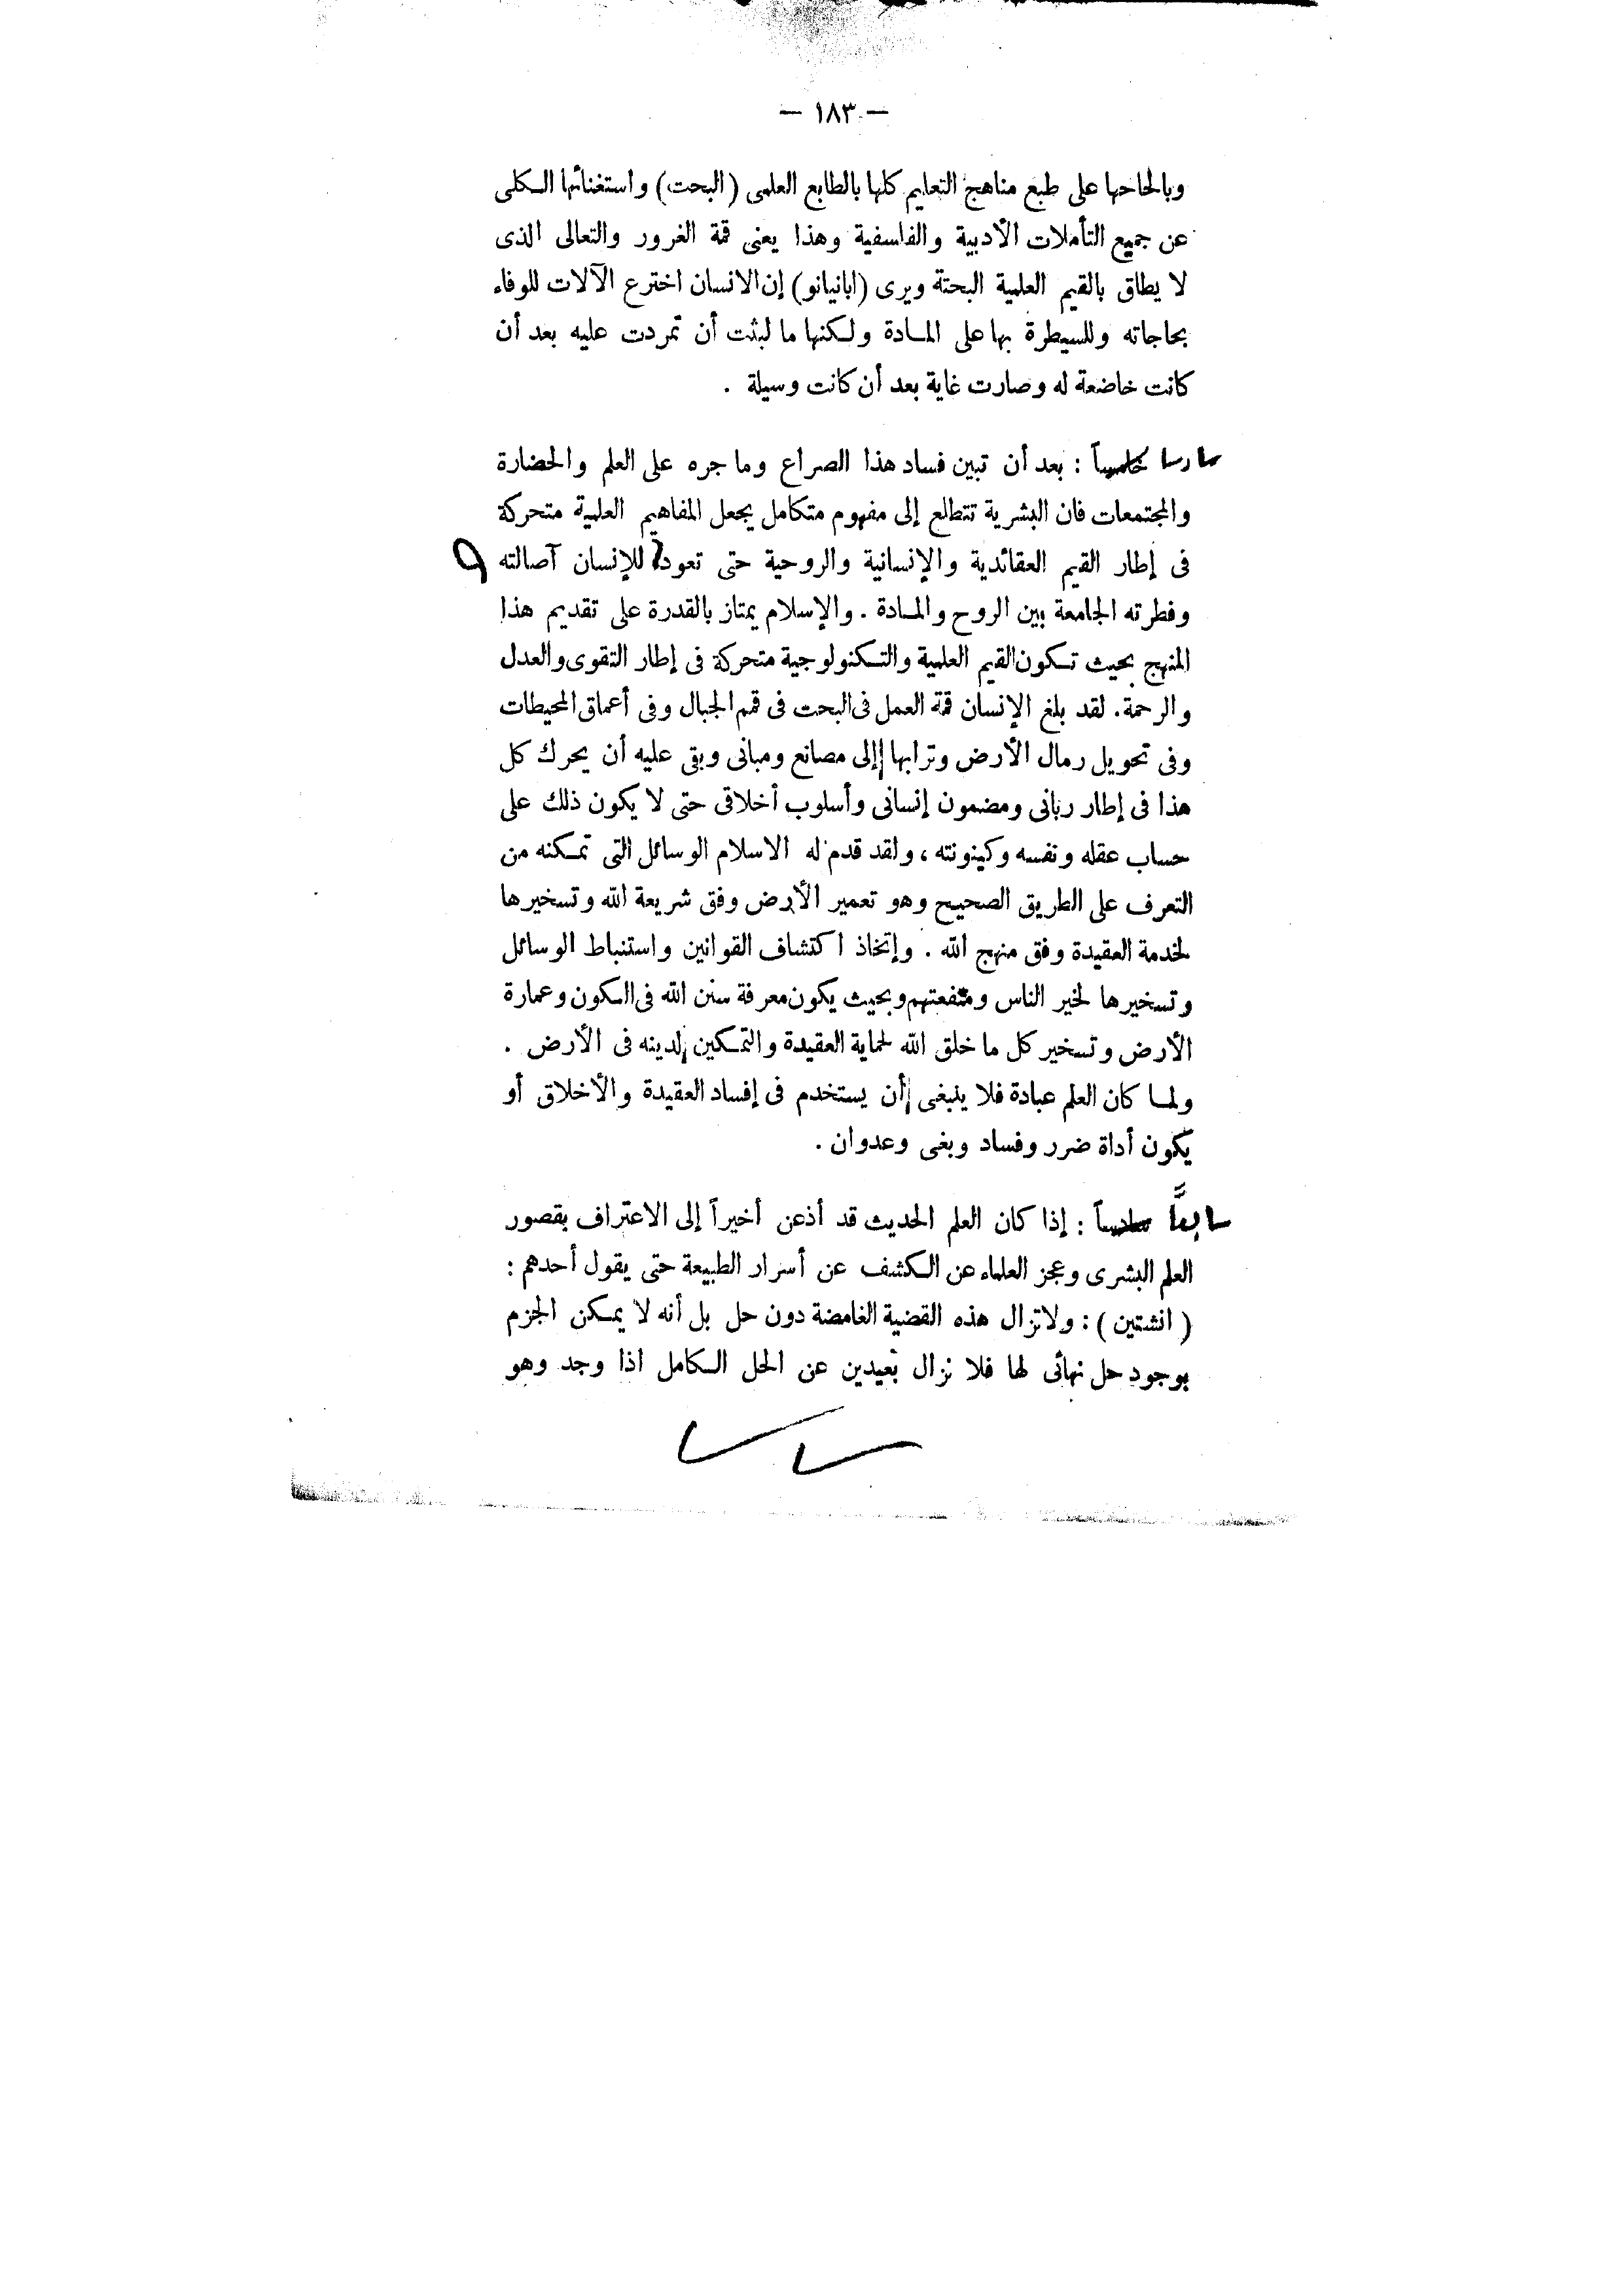 — ١٨٣ —
وبالحاحها على طبع مناهج التعليم كلها بالطابع العلمى (البحت) واستغنائها الكلى
عن جميع التأملات الأدبية والفلسفية وهذا يعنى قمة الغرور والتعالى الذى
لا يطاق بالقيم العلمية البحتة ويرى (ابانيانو) إن الانسان اخترع الآلات للوفاء
بحاجاته وللسيطرة بها على المادة ولكنها ما لبثت أن تمردت عليه بعد أن
كانت خاضعة له وصارت غاية بعد أن كانت وسيلة .
سادسا خامساً : بعد أن تبين فساد هذا الصراع وما جره على العلم والحضارة
والمجتمعات فان البشرية تتطلع إلى مفهوم متكامل يجعل المفاهيم العلمية متحركة
فى إطار القيم العقائدية والإنسانية والروحية حتى تعود للإنسان آصالته
وفطرته الجامعة بين الروح والمادة . والإسلام يمتاز بالقدرة على تقديم هذا
المنهج بحيث تكون القيم العلمية والتكنولوجية متحركة فى إطار التقوى والعدل
والرحمة . لقد بلغ الإنسان قمة العمل فى البحث فى قمم الجبال وفى أعماق المحيطات
وفى تحويل رمال الأرض وترابها إلى مصانع ومبانى وبقى عليه أن يحرك كل
هذا فى إطار ربانى ومضمون إنسانى وأسلوب أخلاقى حتى لا يكون ذلك على
حساب عقله ونفسه وكينونته ، ولقد قدم له الاسلام الوسائل التى تمكنه من
التعرف على الطريق الصحيح وهو تعمير الأرض وفق شريعة الله وتسخيرها
لخدمة العقيدة وفق منهج الله . وإتخاذ اكتشاف القوانين واستنباط الوسائل
وتسخيرها لخير الناس ومنفعتهم وبحيث يكون معرفة سنن الله فى الكون وعمارة
الأرض وتسخير كل ما خلق الله لحماية العقيدة والتمكين لدينه فى الأرض .
ولما كان العلم عبادة فلا ينبغى أن يستخدم فى إفساد العقيدة والأخلاق أو
يكون أداة ضرر وفساد وبغى وعدوان .
سابعاً سادساً : إذا كان العلم الحديث قد أذعن أخيراً إلى الاعتراف بقصور
العلم البشرى وعجز العلماء عن الكشف عن أسرار الطبيعة حتى يقول أحدهم :
( انشتين ) : ولاتزال هذه القضية الغامضة دون حل بل أنه لا يمكن الجزم
بوجود حل نهائى لها فلا نزال بعيدين عن الحل الكامل اذا وجد وهو